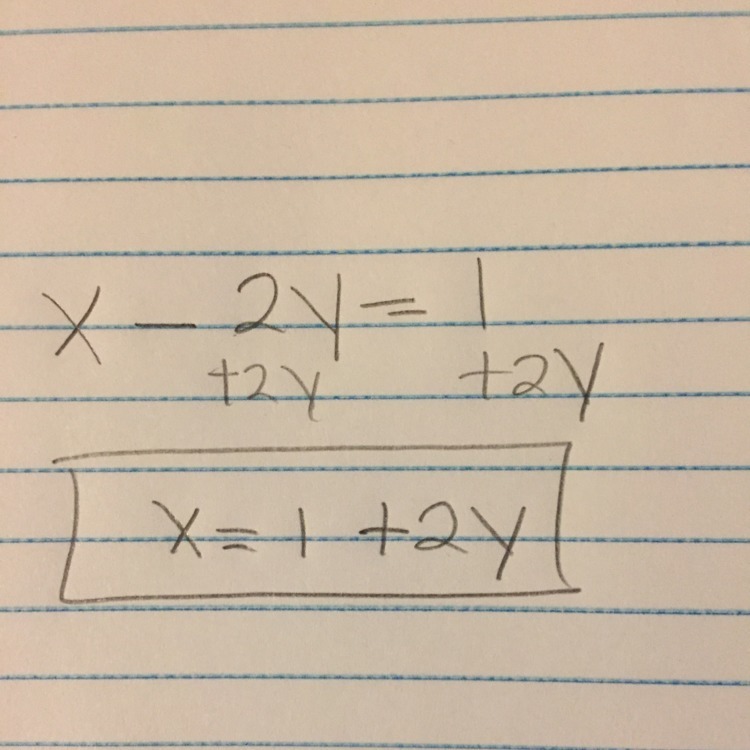 x - 2y = 1
+2y +2y
x = 1 + 2y